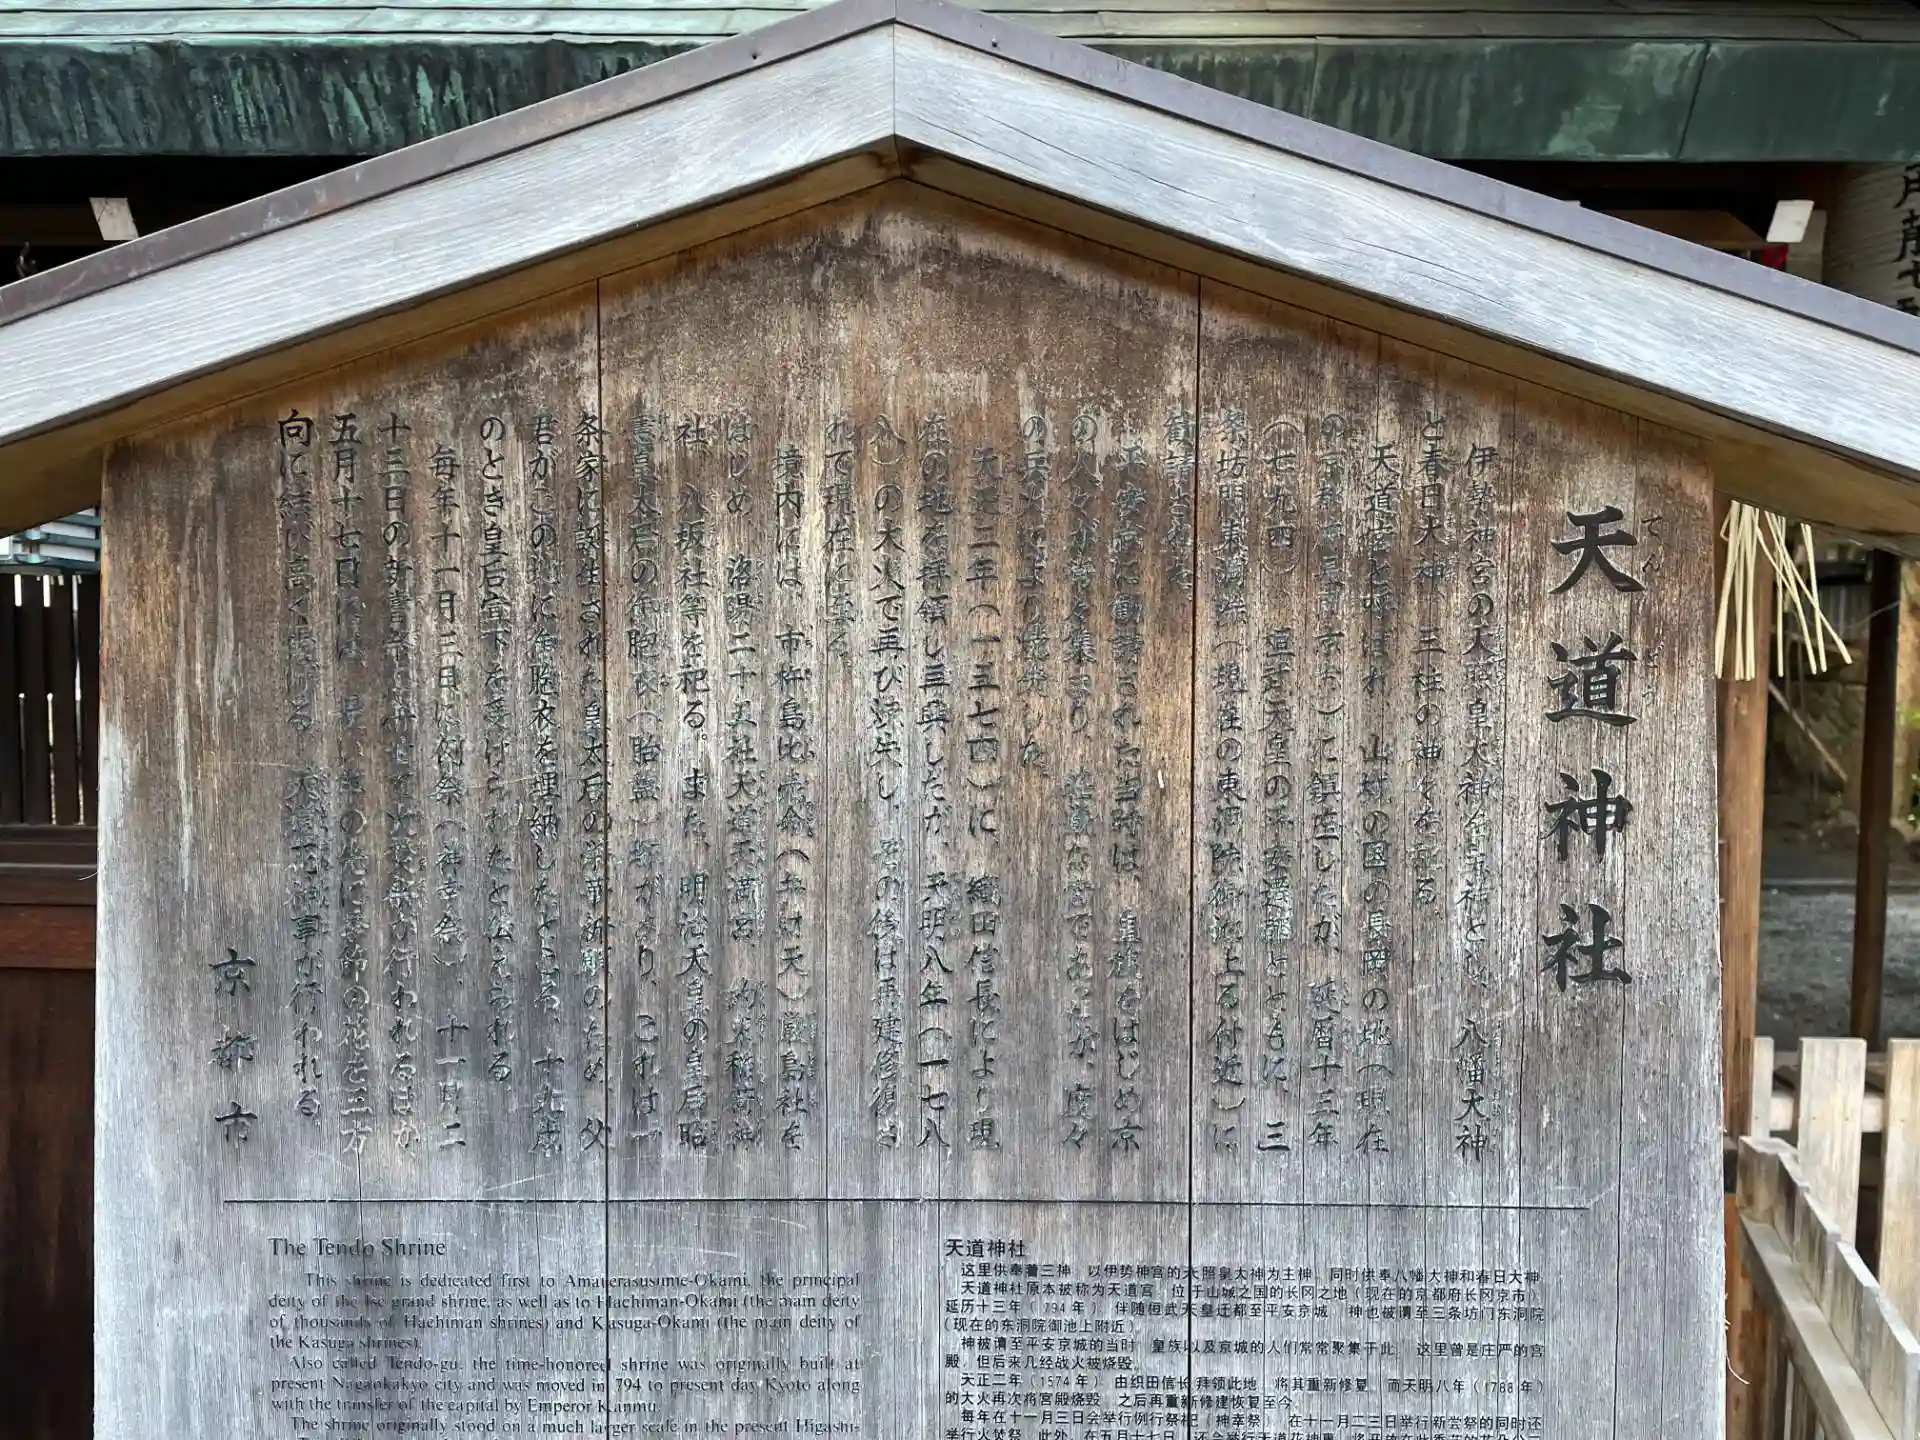 天道神社
てんどう
伊勢神宮の天照皇大神を主神とし、八幡大神
と春日大神、三柱の神々を祀る。
天道宮と呼ばれ、山城の国の長岡の地（現在
の京都府長岡京市）に鎮座したが、延暦十三年
（七九四）、桓武天皇の平安遷都とともに、三
条坊門東洞院（現在の東洞院御池上る付近）に
勧請された。
平安京に勧請された当時は、皇族をはじめ京
の人々が常々集まり、荘厳な宮であったが、度々
の兵火により焼失した。
天正二年（一五七四）に、織田信長により現
在の地を拝領し再興したが、天明八年（一七八
八）の大火で再び焼失し、その後は再建修復さ
れて現在に至る。
境内には、市杵島比売命（弁財天）厳島社を
はじめ、洛陽二十五社天道天満宮、明火稲荷神
社、八坂社等を祀る。また、明治天皇の皇后昭
憲皇太后の御胞衣（胎盤）塚があり、これは一
条家に誕生された皇太后の栄華祈願のため、父
君がこの地に御胞衣を埋納したとされ、十九歳
のとき皇后宣下を受けられたと伝えられる
毎年十一月三日に例祭（神幸祭）、十一月二
十三日の新嘗祭と併せて火焚祭が行われるほか
五月十七日には、長い竿の先に季節の花を三方
向に結び高く掲げる、天道花神事が行われる
京都市
The Tendo Shrine
This shrine is dedicated first to Amaterasusume-Okami, the principal
deity of the Ise grand shrine, as well as to Hachiman-Okami (the main deity
of thousands of Hachiman shrines) and Kasuga-Okami (the main deity of
the Kasuga shrines).
Also called Tendo-gu, the time-honored shrine was originally built at
present Nagaokakyo city and was moved in 794 to present day Kyoto along
with the transfer of the capital by Emperor Kanmu.
The shrine originally stood on a much larger scale in the present Higashi-
天道神社
这里供奉着三神，以伊势神宫的天照皇大神为主神，同时供奉八幡大神和春日大神
天道神社原本被称为天道宫，位于山城之国的长冈之地（现在的京都府长冈京市）
延历十三年（794年），伴随桓武天皇迁都至平安京城，神也被请至三条坊门东洞院
（现在的东洞院御池上附近）
神被请至平安京城的当时，皇族以及京城的人们常常聚集于此，这里曾是庄严的宫
殿，但后来几经战火被烧毁。
天正二年（1574年），由织田信长拜领此地，将其重新修复，而天明八年（1788年）
的大火再次将宫殿烧毁，之后再重新修建恢复至今
每年在十一月三日会举行例行祭祀（神幸祭），在十一月二三日举行新尝祭的同时还
举行火焚祭，此外，在五月十七日，还会举行天道花神事